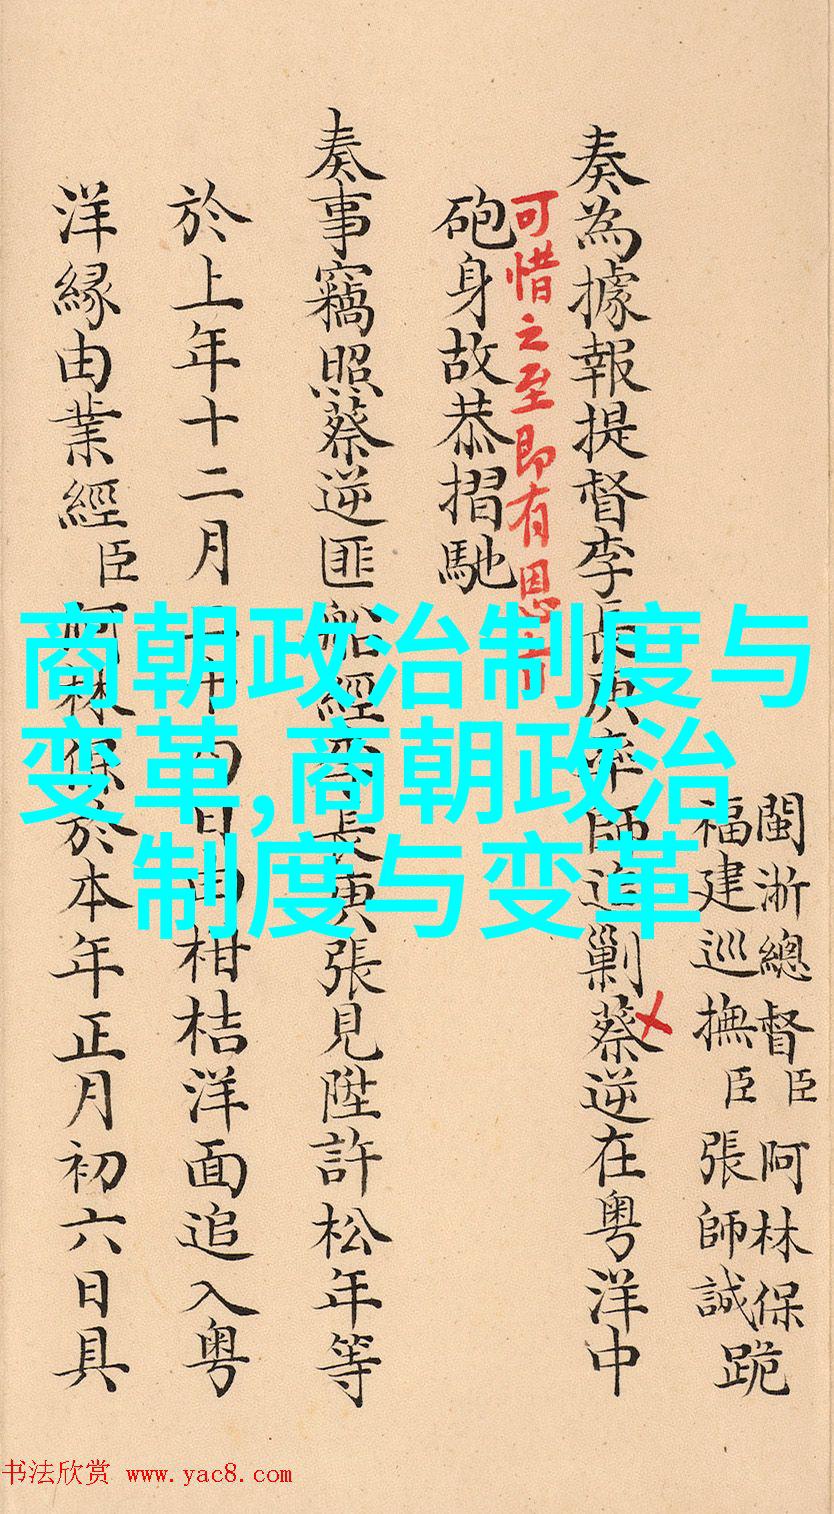 閩浙總督臣阿林保
福建巡撫臣張師誠
跪
奏為據報提督李長庚率師追剿蔡逆在粤洋中
可惜之至即有恩
砲身故恭摺馳
奏事竊照蔡逆匪船經李長庚張見陞許松年等
於上年十二月二十日由柑桔洋面追入粤
洋緣由業經臣阿林保於本年正月初六日具
商朝政治制度与
变革,商朝政治
制度与变革
书法欣赏 www.yac8.com